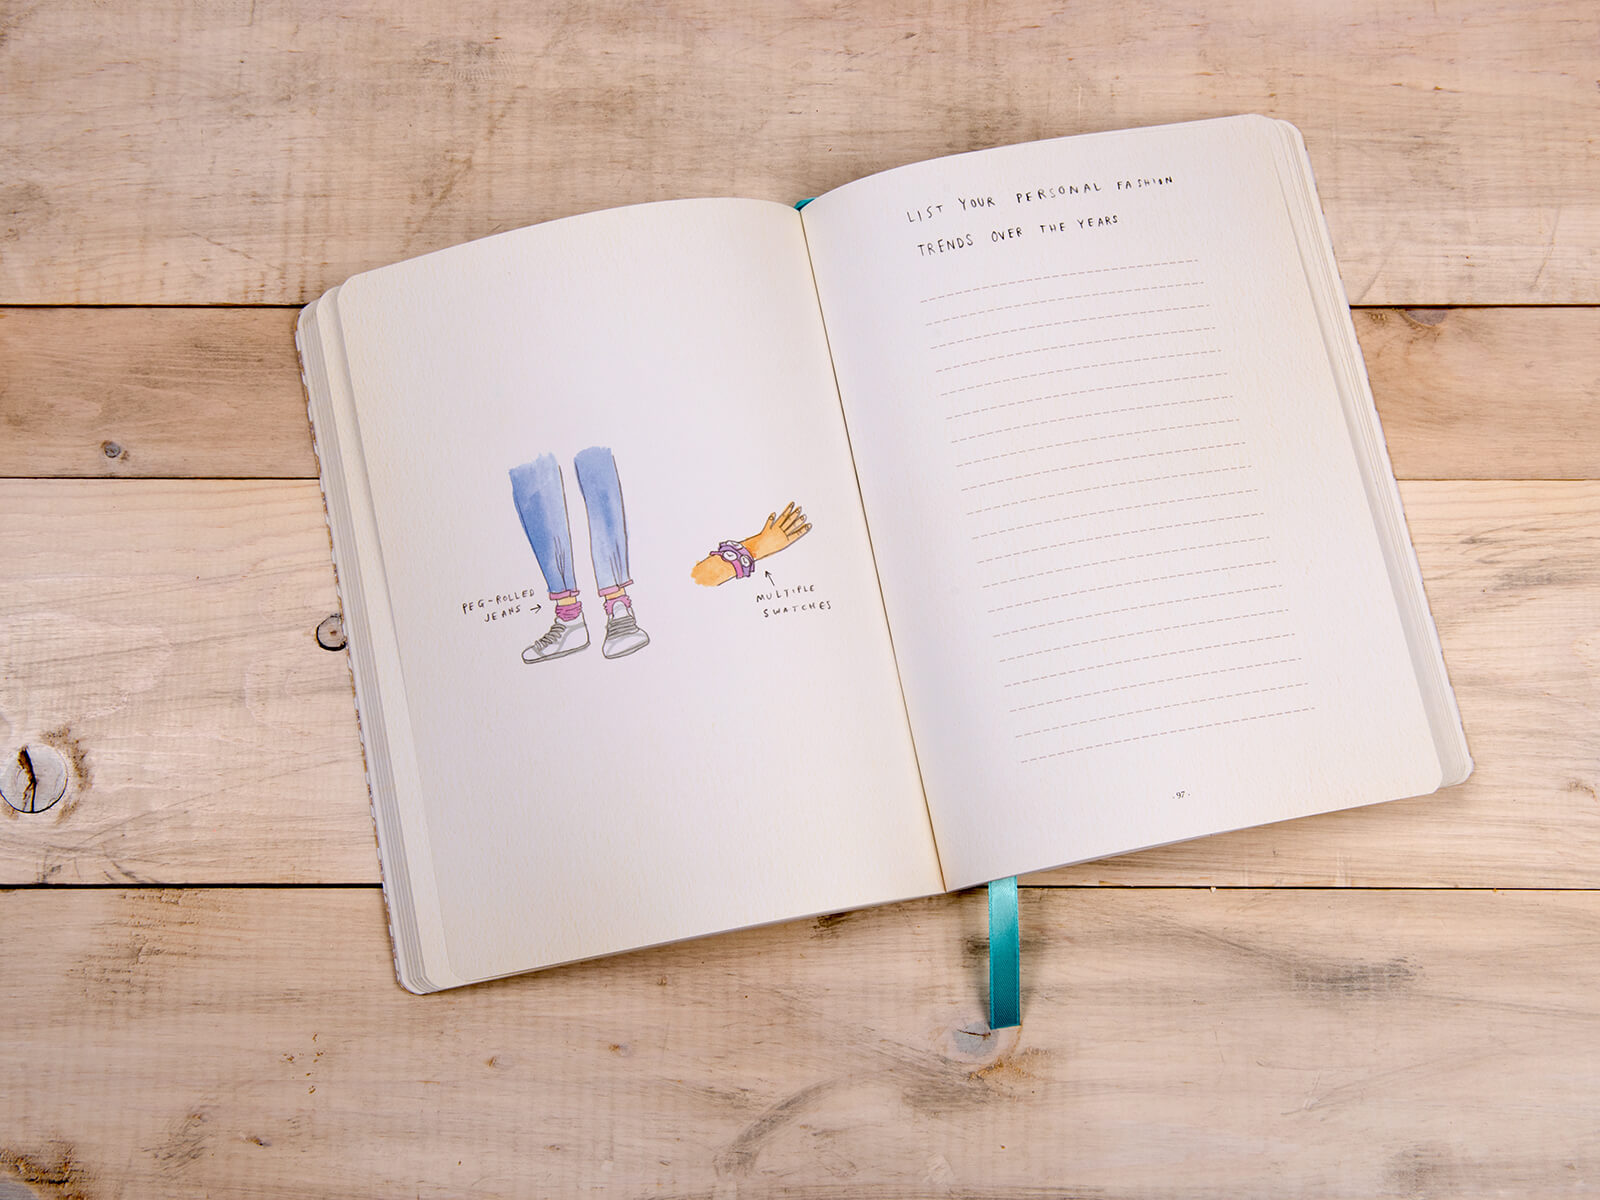 PEG-ROLLED
JEANS →
MULTIPLE
SWATCHES
LIST YOUR PERSONAL FASHION
TRENDS OVER THE YEARS
· 97 ·